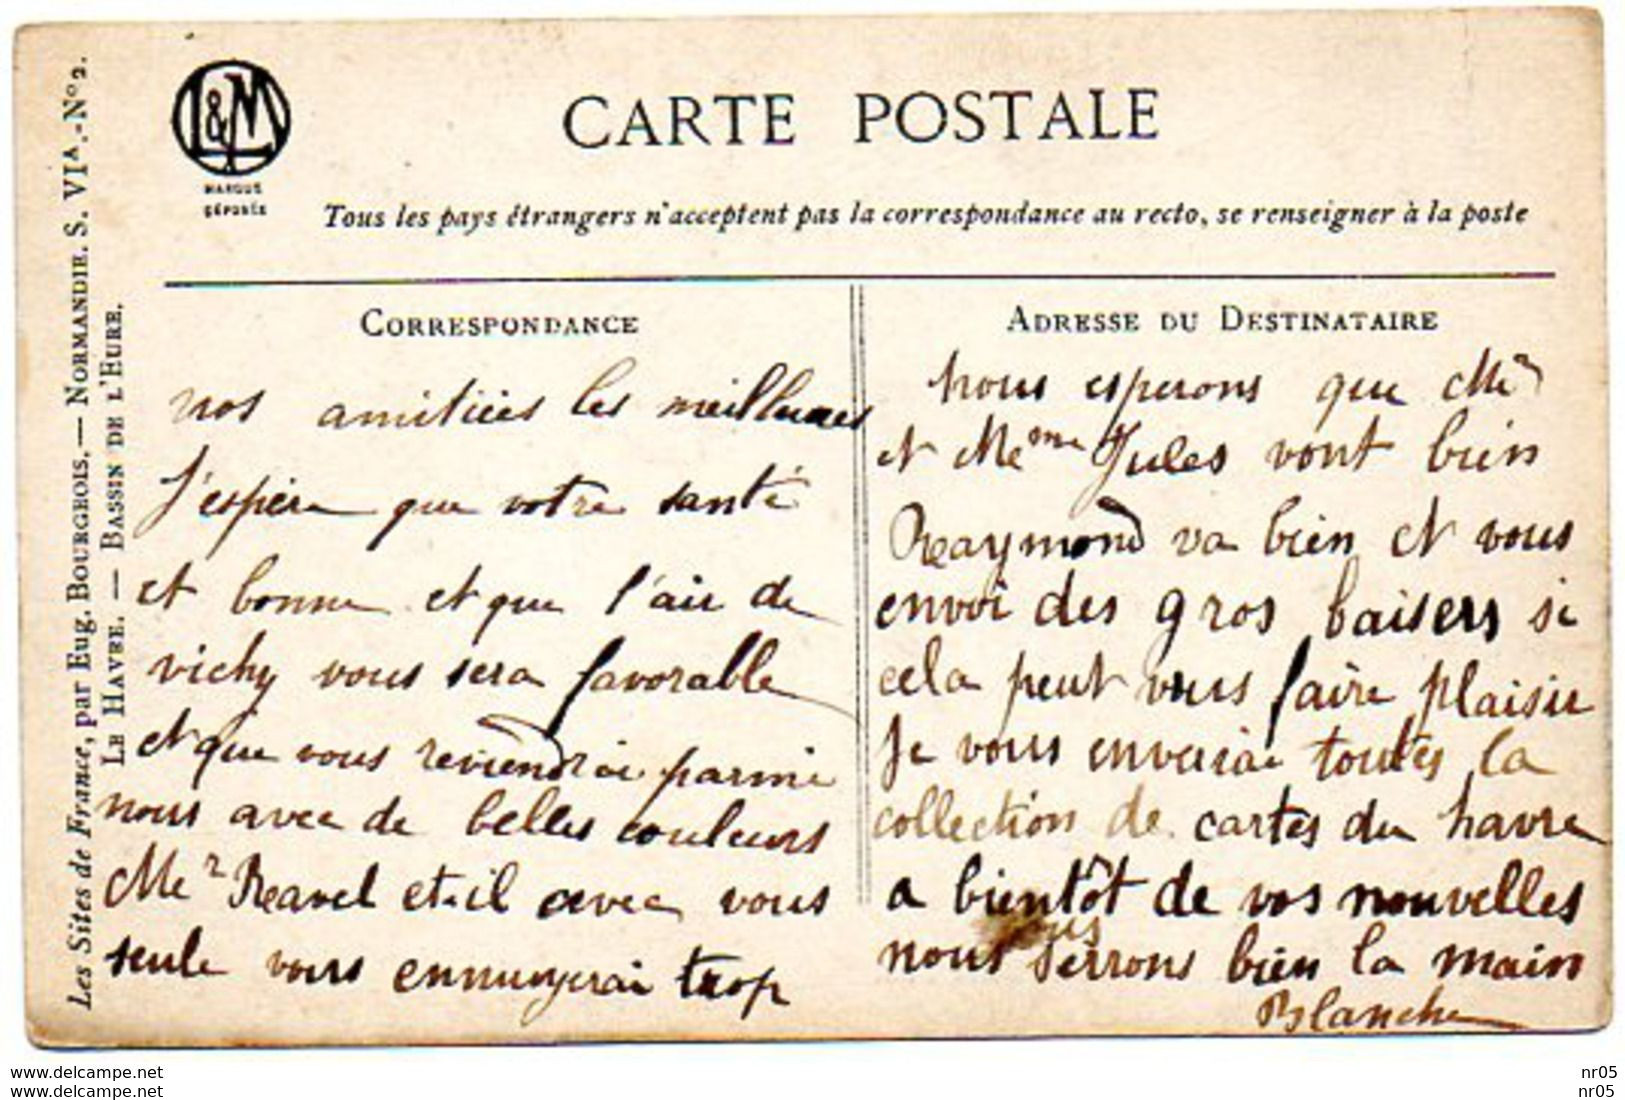 L&M
MARQUE
DÉPOSÉE
CARTE POSTALE
Tous les pays étrangers n'acceptent pas la correspondance au recto, se renseigner à la poste
Les Sites de France, par Eug. Bourgeois. — Normandie. S. VIA.-No 2.
Le Havre. — Bassin de l'Eure.
Correspondance
nos amitiées les meilleures
J'espère que votre santé
et bonne et que l'air de
vichy vous sera favorable
et que vous reviendrai parmi
nous avec de belles couleurs
Mr Ravel et-il avec vous
seule vous ennuyerai trop
Adresse du Destinataire
nous esperons que Mr
et Meme Jules vont bien
Raymond va bien et vous
envoi des gros baisers si
cela peut vous faire plaisir
Je vous enverai toutes la
collection de cartes du havre
a bientôt de vos nouvelles
nous vous serrons bien la main
Blanche
www.delcampe.net
www.delcampe.net
nr05
nr05